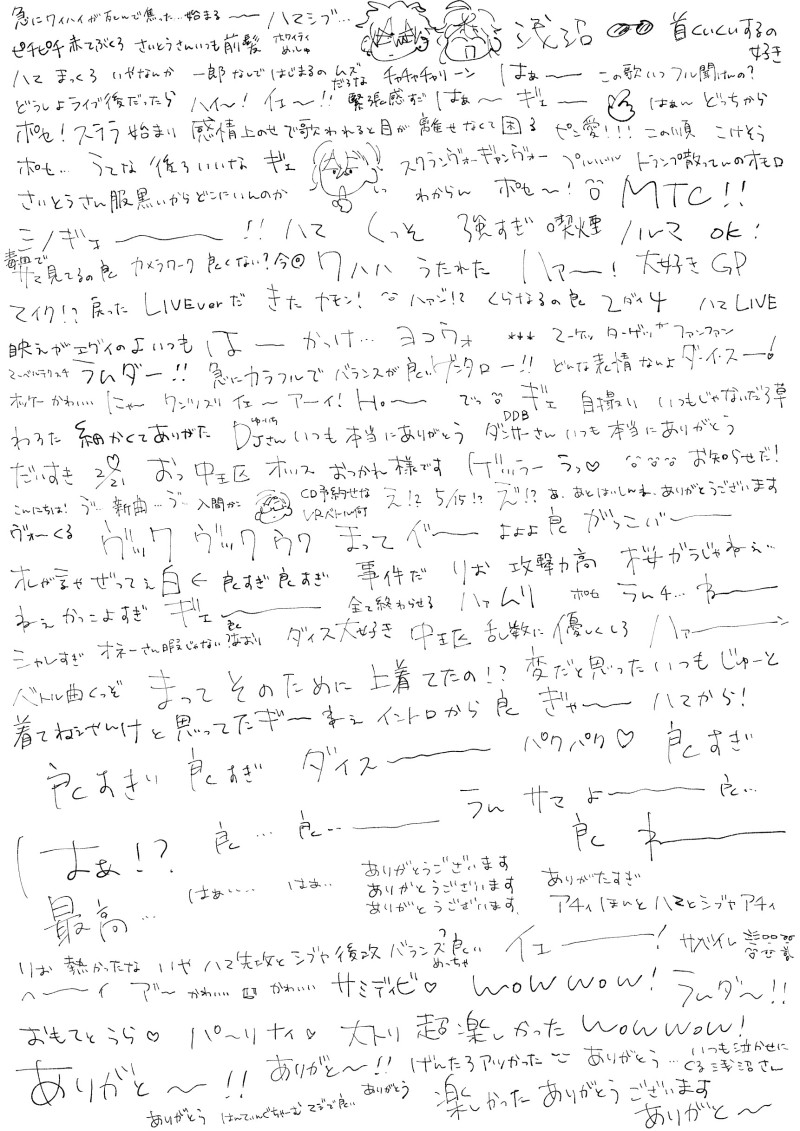 急にワイハイが死んで焦った…始まる〜 ハマシブ…
ピチピチ赤てぶくろ さいとうさんいつも前髪 浅沼 首くいくいするの好き
ハマ まっくろ いやなんか 一郎なしではじまるの ムズだろな チャチャチャリーン はぁ〜 この歌いつフル聞けんの?
どうしよライブ後だったら ハイ〜! イェ〜!! 緊張感すご はぁ〜 ギェ〜 はぁ〜 どっちから
ポセ!ステラ始まり 感情上のせで歌われると目が離せなくて困る ピン愛!!! この順 こけそう
ポセ… うてな 後ろいいな ギェ スクランヴォーギャンヴォー プルルルル トランプ散ってんのオモロ
さいとうさん服黒いからどこにいんのか わからん ポセ〜! MTC!!
ミノギェ――!! ハマ くっそ 強すぎ 喫煙 ノルマ OK!
見てるの良 カメラワーク 良くない?今 ワハハ うたれた ハァー! 大好き GP
テイク!? 戻った LIVEverだ きた カモン! ハァン!? くらなるの良 ハマ LIVE
映えがエグイのよいつも はー かっけ… ヨコウォ *** マーケッ ターゲッ ファンファン
ラムダー!! 急にカラフルで バランスが良い ゲンタロー!! どんな表情なんよ ダーイースー!
ホッケーかわいい… にゃー ワンツースリ イェ〜 アーイ! Ho〜 でっ ギェ 自撮えい いつもじゃないだろ草
わろた 細かくてありがた DJさんいつも本当にありがとう DDB ダンサーさん いつも本当にありがとう
だいすき おっ 中王区 ホッス おつかれ様です ゲッッラー うっ♡ お知らせだ!
こんにちは! ゔ… 新曲…ゔー 入間かこ CD予約させな VRバトル付 え!? 5/15!? え"!? あ、あとはいしんね、ありがとうございます
ヴォーくる ヴック ヴック ゥゥ まって イ"ー よよよ 良 がっこいバー
オレが言やぜってぇ白 ← 良すぎ 良すぎ 事件だ りお 攻撃力高 桜がうじゃねぇ…
ねぇ かっこよすぎ ギェ―― 全て終わらせる ハマ ムリ ポセ ラムチ… ねー
シャレすぎ オネーさん暇じゃない? ダイス大好き 中王区 乱数に 優しくしろ ハァ――ン
バトル曲くっそ まって そのために 上着 てたの!? 変だと思った いつも じゅーと
着てねぇやんけと思ってたギー ねぇ イントロから 良 ぎゃー ハマから!
良くすぎい 良すぎ ダイス―― パクパク♡ 良すぎ
ラム サマ よ―― 良…
はぁ!? 良… 良… ―― 良 ね――
はぁ… はぁ… ありがとうございます ありがたすぎ
ありがとうございます
最高… ありがとうございます アチィ ほんと ハマとシブヤ アチィ
りお 熱かったな いや ハマ先攻とシブヤ後攻 バランス良い めっちゃ イェ――! サバイレ
ヘーーイ ア"ー かわいい かわいい サミデイビ♡ wow wow! ラムダ〜!!
おもてとうら♡ パ〜リナイ♡ 大トリ 超楽しかった wow wow!
ありがと〜!! ありがと〜!! げんたろアツかった ありがとう… いつも泣かせにくる浅沼さん
ありがとう まで良い ありがとう 楽しかった ありがとうございます
ありがと〜